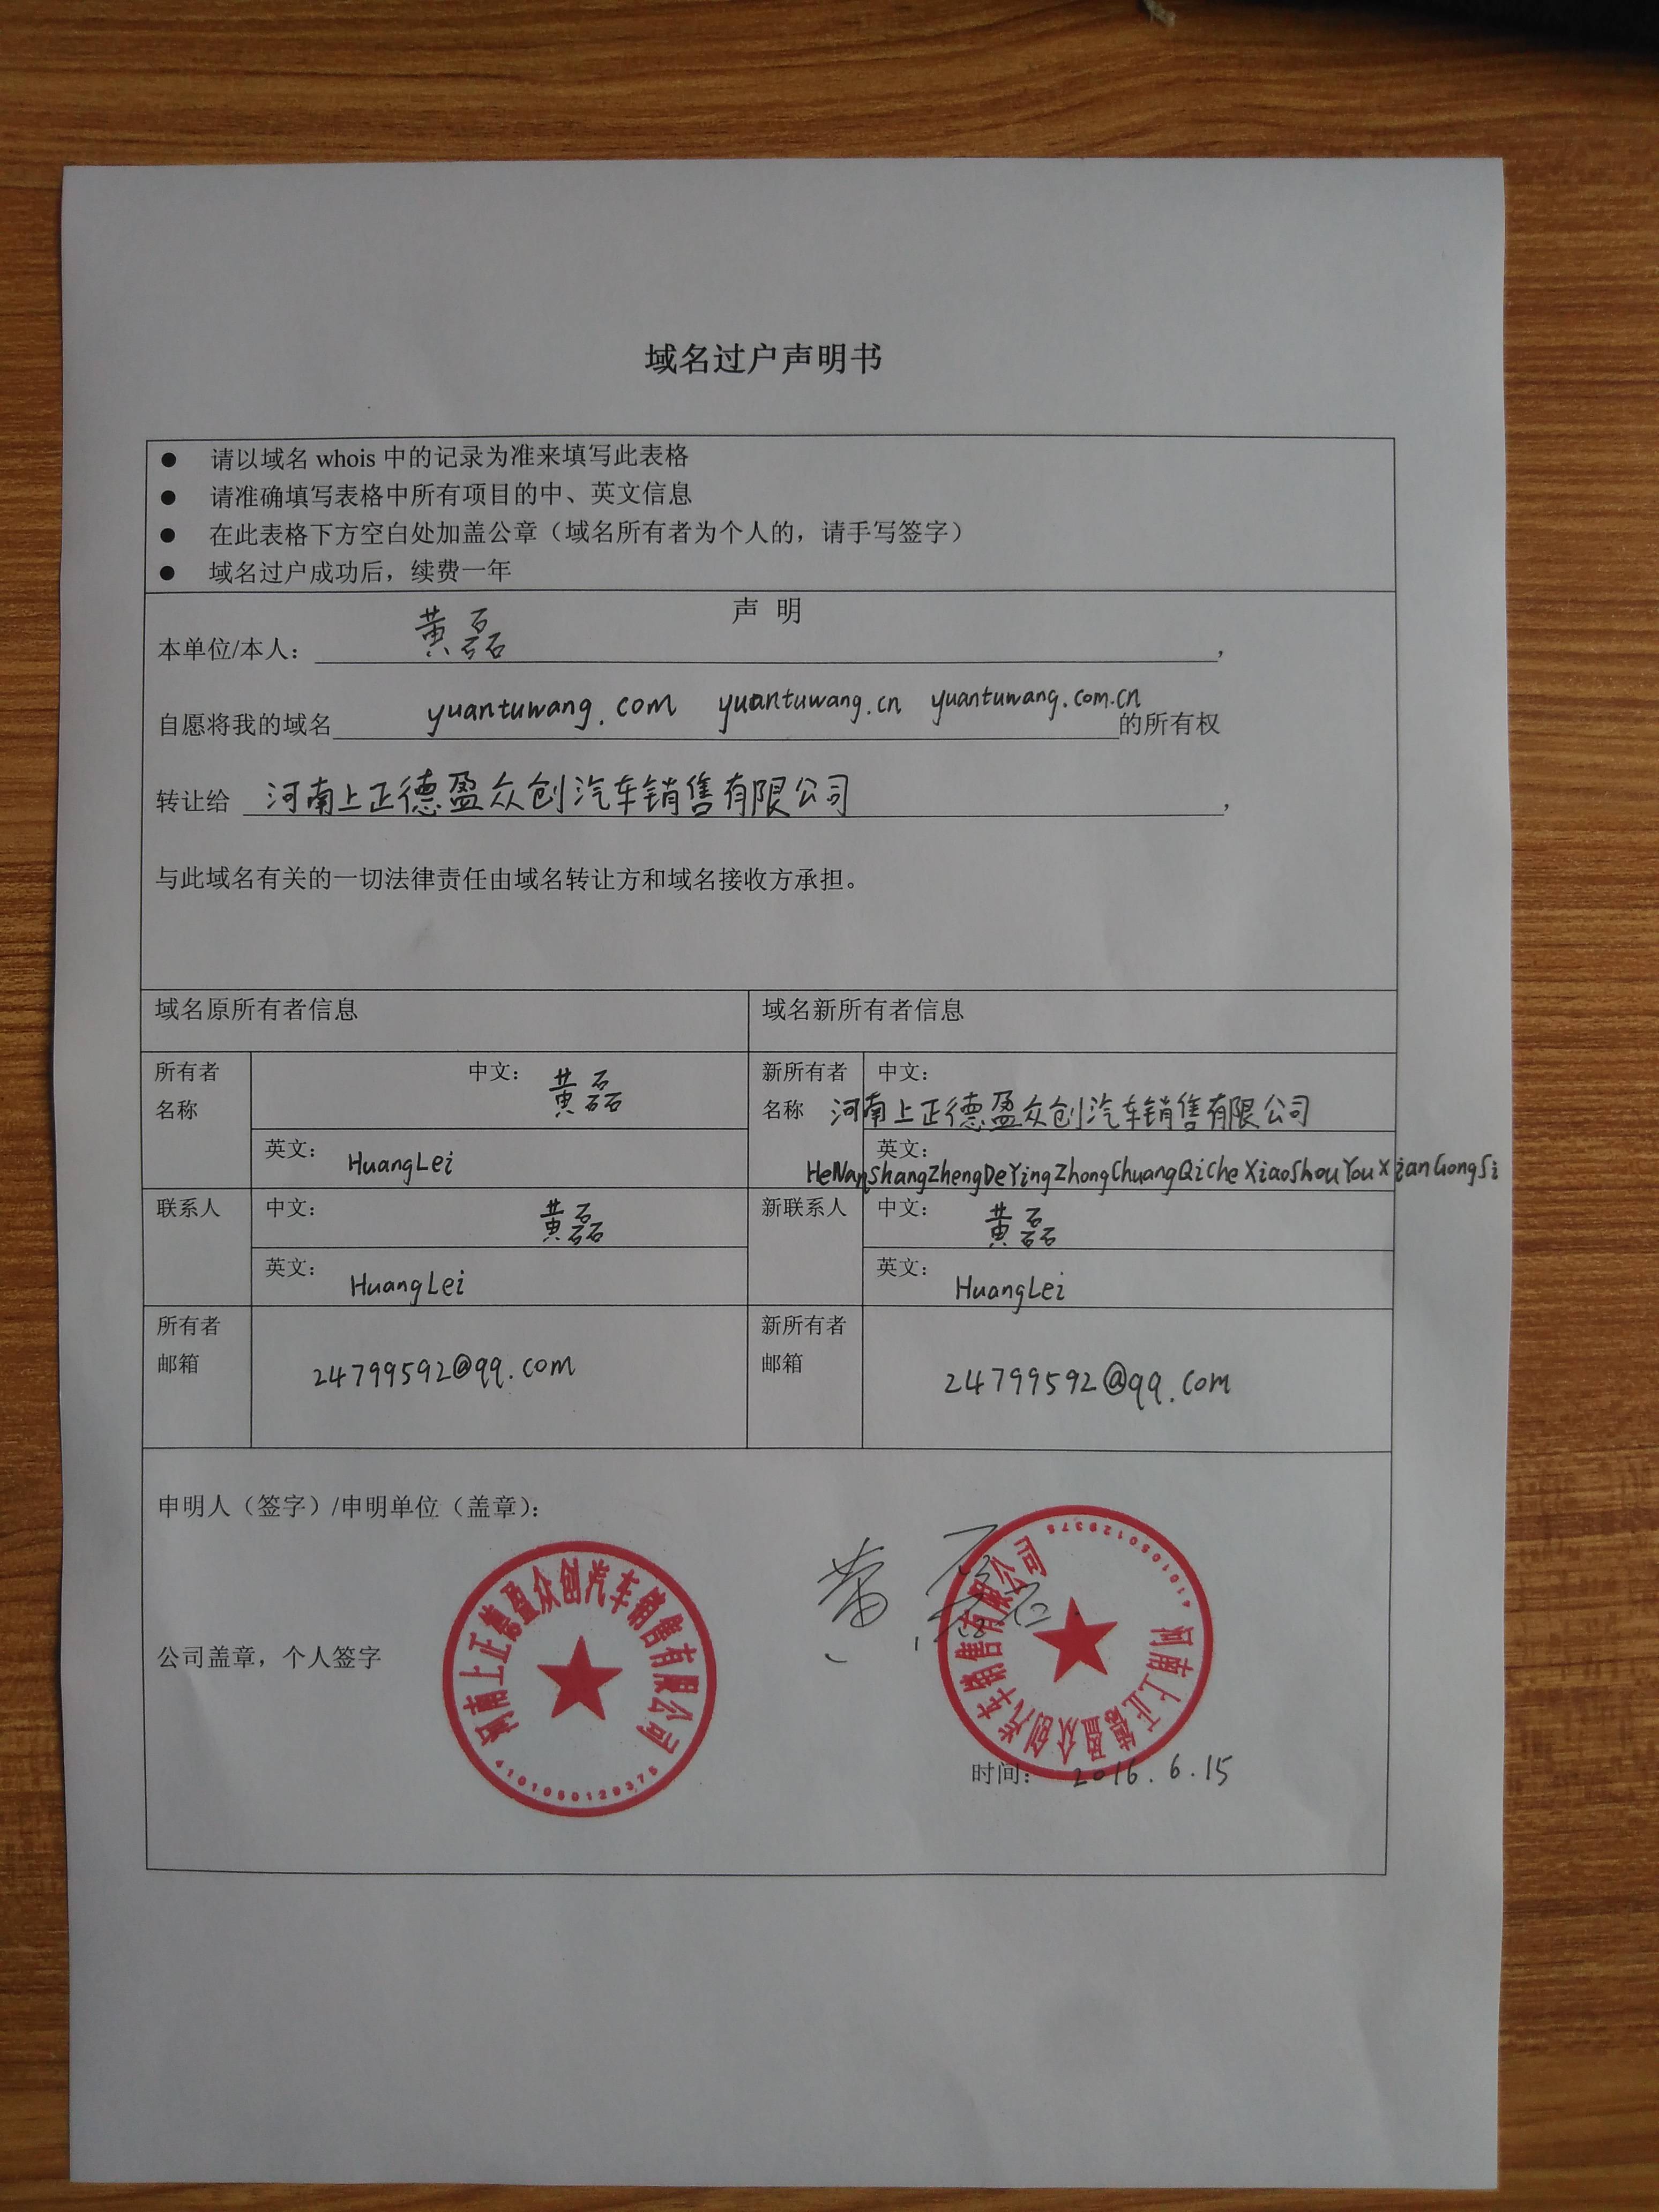 域名过户声明书
● 请以域名 whois 中的记录为准来填写此表格
● 请准确填写表格中所有项目的中、英文信息
● 在此表格下方空白处加盖公章（域名所有者为个人的，请手写签字）
● 域名过户成功后，续费一年
声 明
本单位/本人： 黄磊 ，
自愿将我的域名 yuantuwang.com yuantuwang.cn yuantuwang.com.cn 的所有权
转让给 河南上正德盈众创汽车销售有限公司 ，
与此域名有关的一切法律责任由域名转让方和域名接收方承担。
域名原所有者信息 域名新所有者信息
所有者名称 中文： 黄磊
英文： HuangLei
新所有者名称 中文： 河南上正德盈众创汽车销售有限公司
英文： HeNanShangZhengDeYingZhongChuangQiCheXiaoShouYouXianGongSi
联系人 中文： 黄磊
英文： HuangLei
新联系人 中文： 黄磊
英文： HuangLei
所有者邮箱 24799592@qq.com
新所有者邮箱 24799592@qq.com
申明人（签字）/申明单位（盖章）：
公司盖章，个人签字
河南上正德盈众创汽车销售有限公司
4101050129375
黄磊
河南上正德盈众创汽车销售有限公司
4101050129375
时间： 2016.6.15